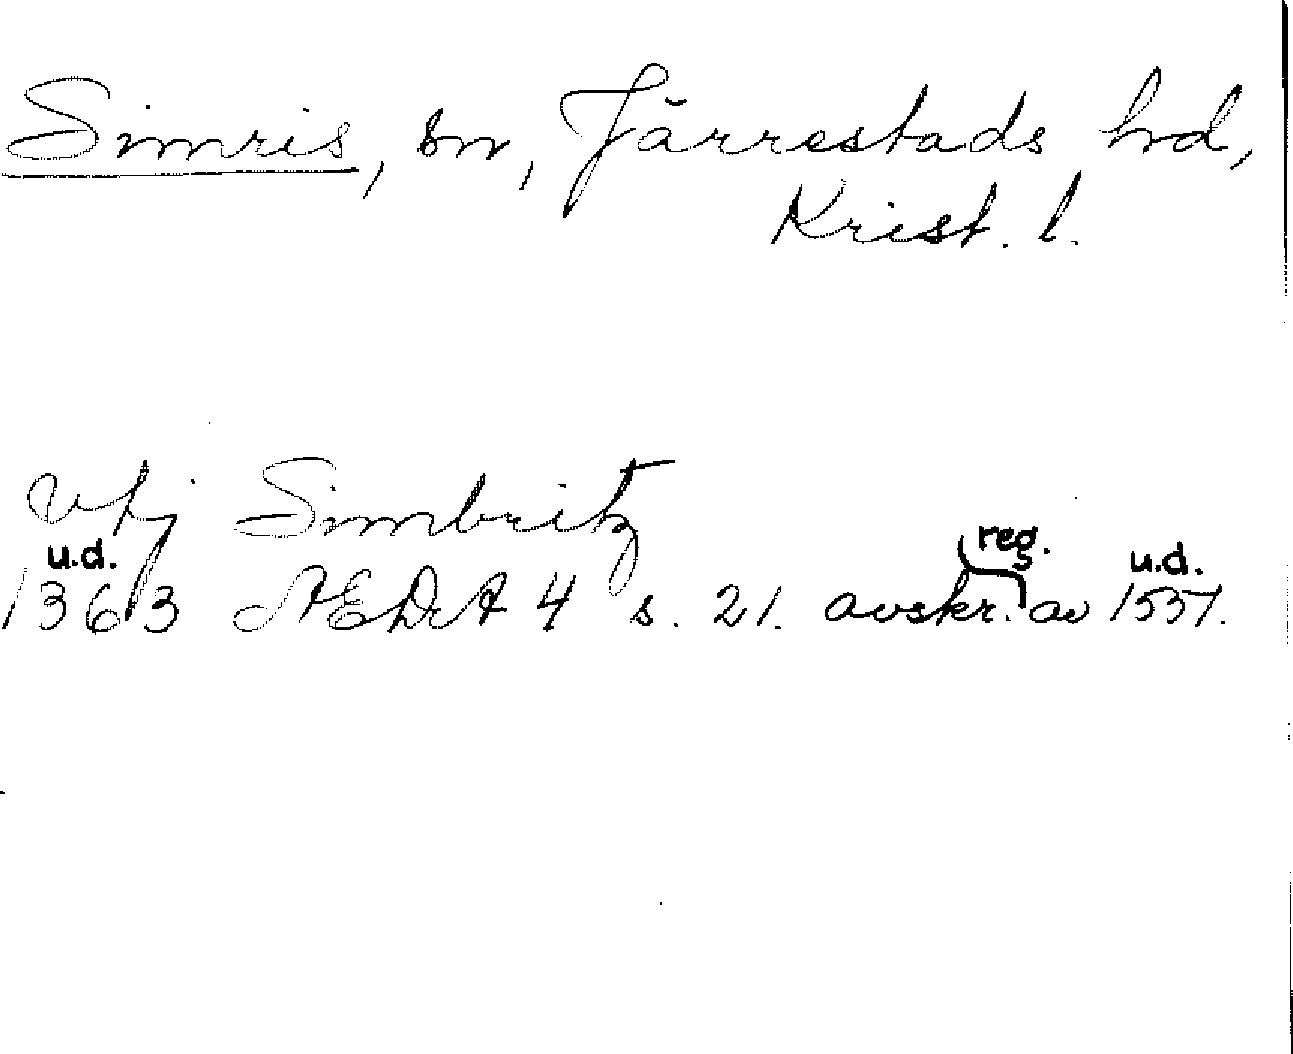 Simris, sn, Järrestads hd,
Krist. l.
vtj Simbritz
u.d. reg. u.d.
1363 ÆDA 4 s. 21. avskr. av 1537.